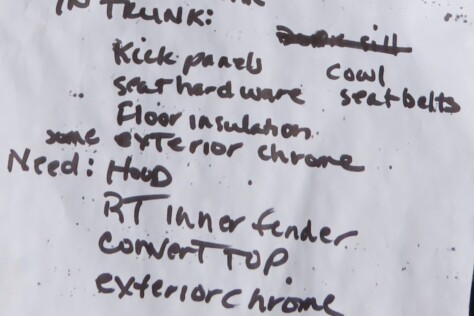 IN TRUNK:
Kick panels cowl
seat hardware seatbelts
Floor insulation
some exTerior chrome
Need: HOOD
RT inner fender
convert TOP
exterior chrome